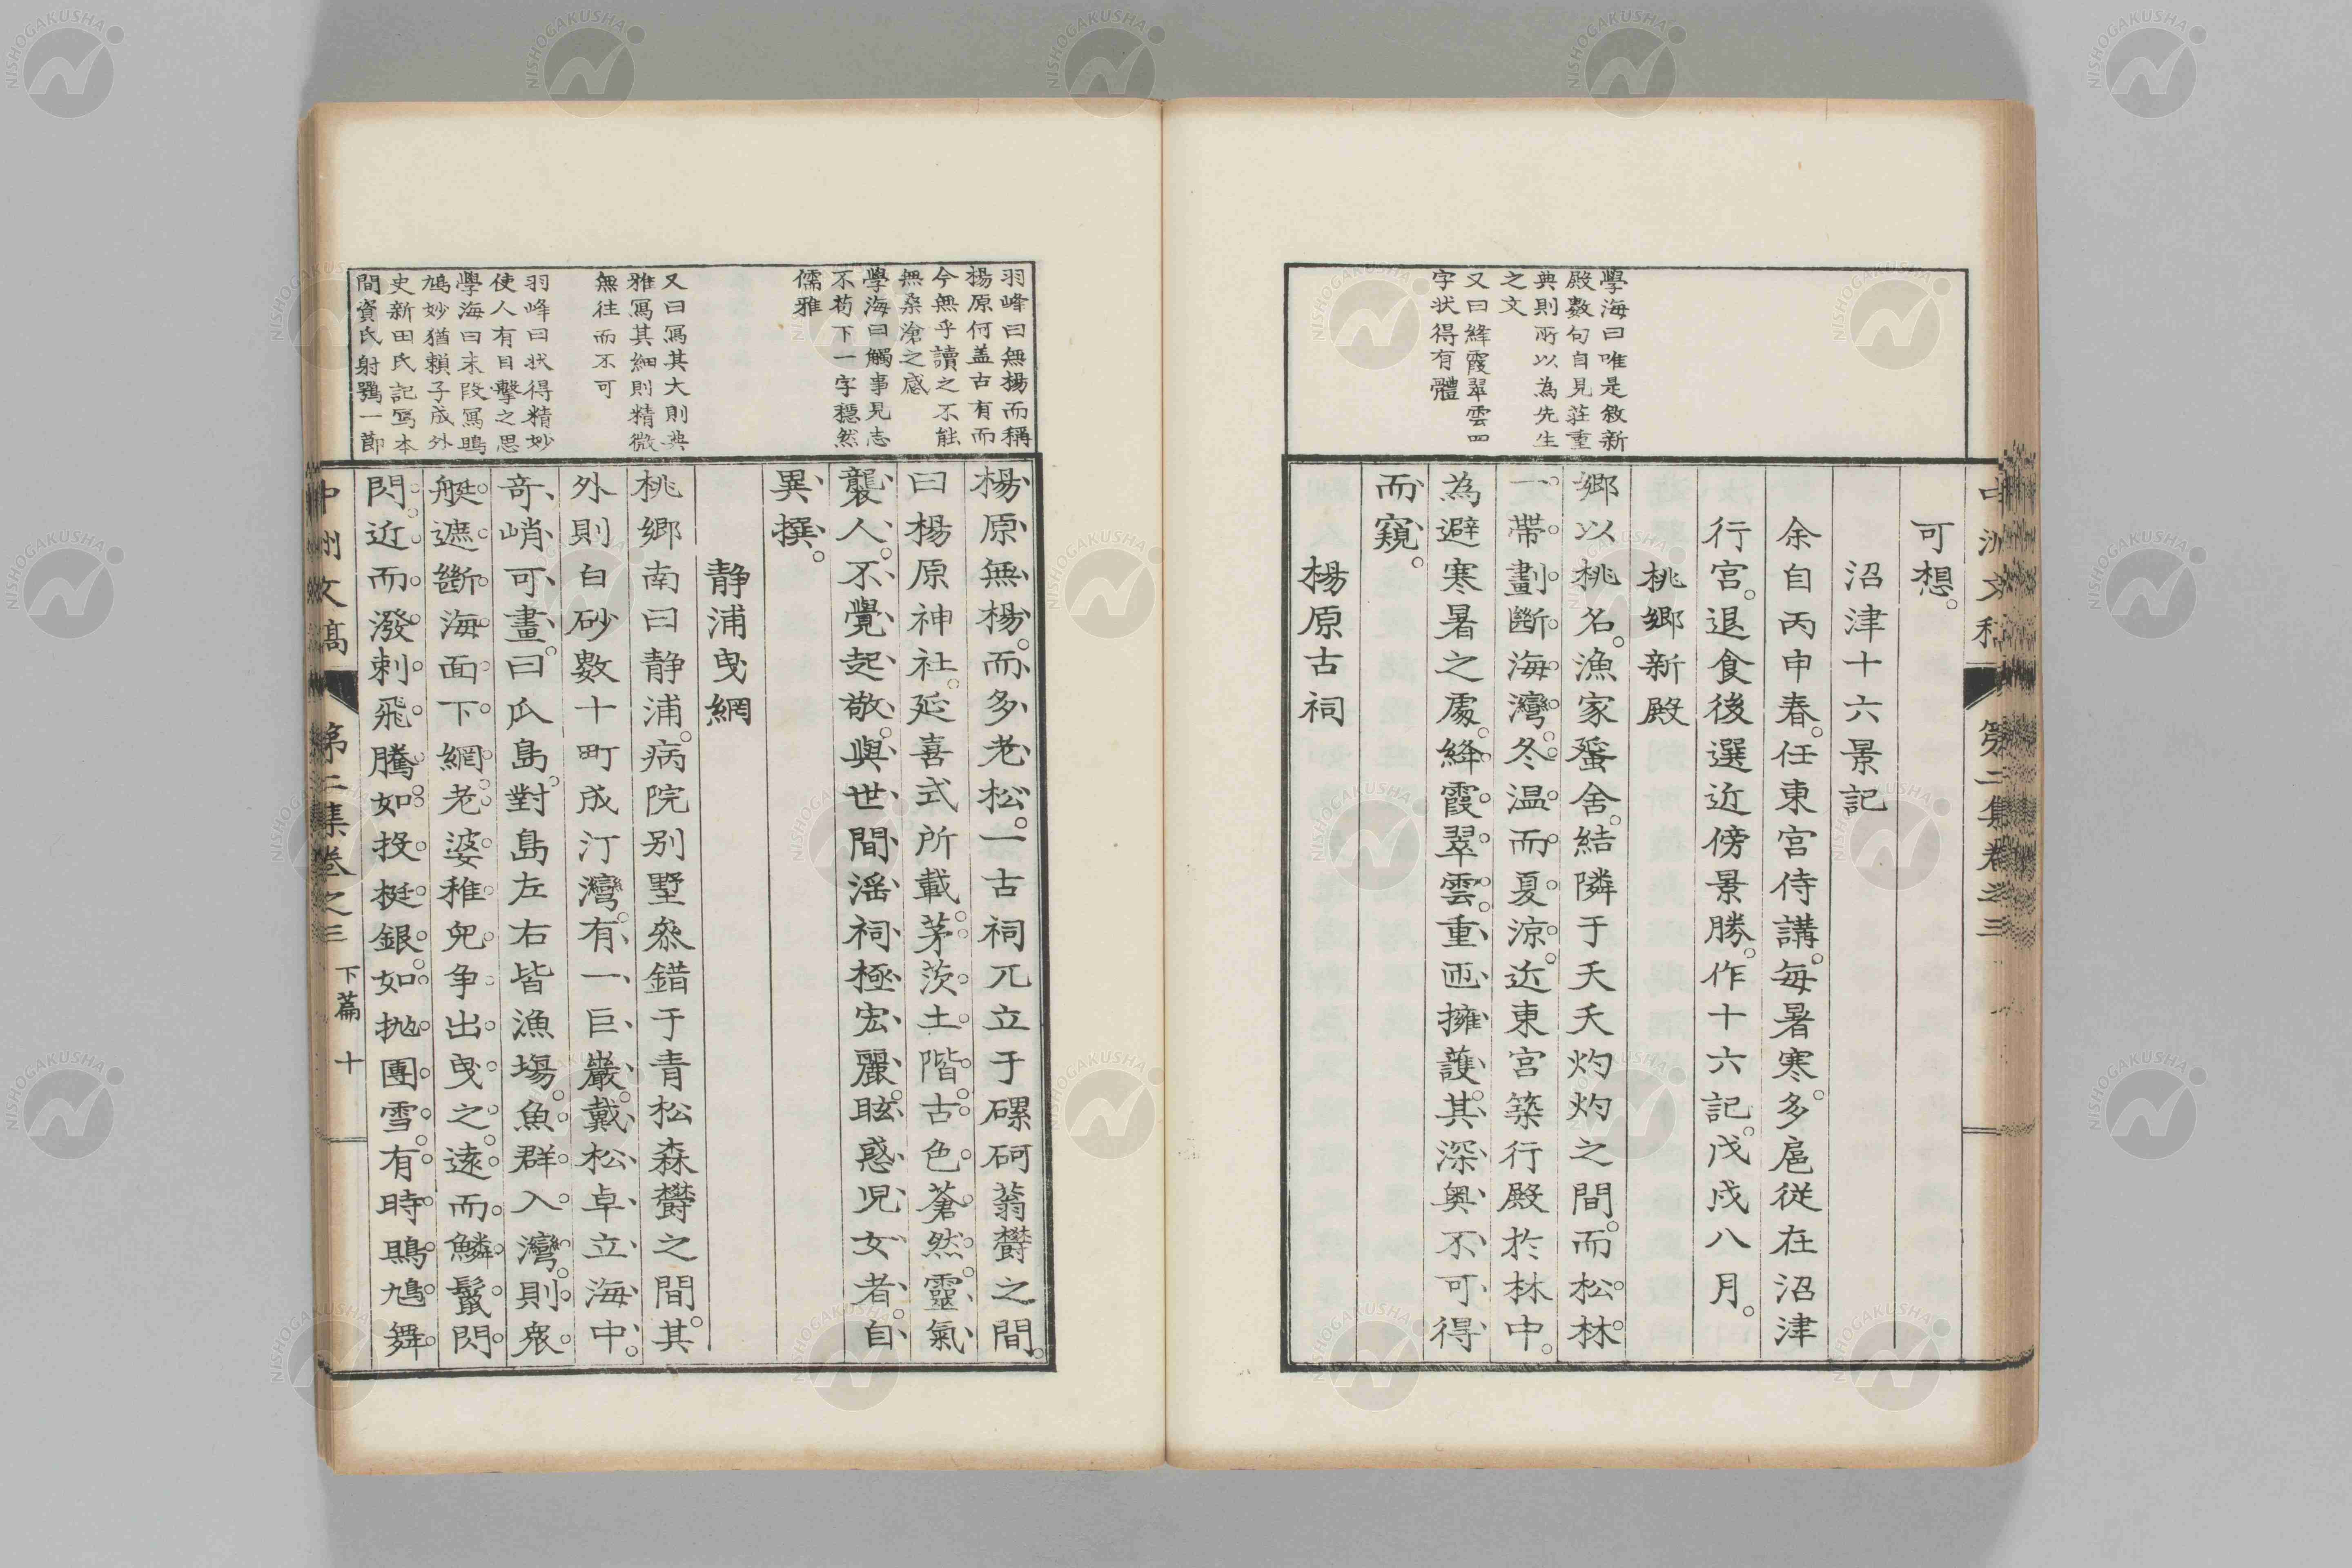 可想。
沼津十六景記
余自丙申春。任東宮侍講。每暑寒。多扈従在沼津
行宮。退食後選近傍景勝。作十六記。戊戌八月。
桃郷新殿
郷以桃名。漁家蜑舍。結隣于夭夭灼灼之間。而松林
一帶。劃斷海灣。冬温而夏涼。近東宮築行殿於林中。
為避寒暑之處。絳霞翠雲。重匝擁護。其深奥不可得
而窺。
楊原古祠
學海曰唯是敘新
殿數句自見莊重
典則所以為先生
之文
又曰絳霞翠雲四
字状得有體
楊原無楊。而多老松。一古祠兀立于磥砢蓊欝之間。
曰楊原神社。延喜式所載。茅茨土階。古色蒼然。靈氣
襲人。不覺起敬。與世間淫祠極宏麗。眩惑児女者。自
異撰。
静浦曳網
桃郷南曰静浦。病院別墅叅錯于青松森欝之間。其
外則白砂數十町成汀灣。有一巨巖。戴松卓立海中。
奇峭可畫。曰瓜島。對島左右皆漁場。魚群入灣。則衆
艇遮斷海面下網。老婆稚兒争出曳之。遠而鱗鬣閃
閃。近而潑剌飛騰。如投梃銀。如拋團雪。有時鵙鳩舞
羽峰曰無楊而稱
楊原何盖古有而
今無乎讀之不能
無桑滄之感
學海曰觸事見志
不苟下一字穩然
儒雅
又曰寫其大則典
雅寫其細則精微
無往而不可
羽峰曰状得精妙
使人有目擊之思
學海曰末段寫鵙
鳩妙猶賴子成外
史新田氏記寫本
間資氏射鶚一節
中洲文稿 第二集卷之三
中洲文稿 第二集卷之三 下篇 十
NISHOGAKUSHA